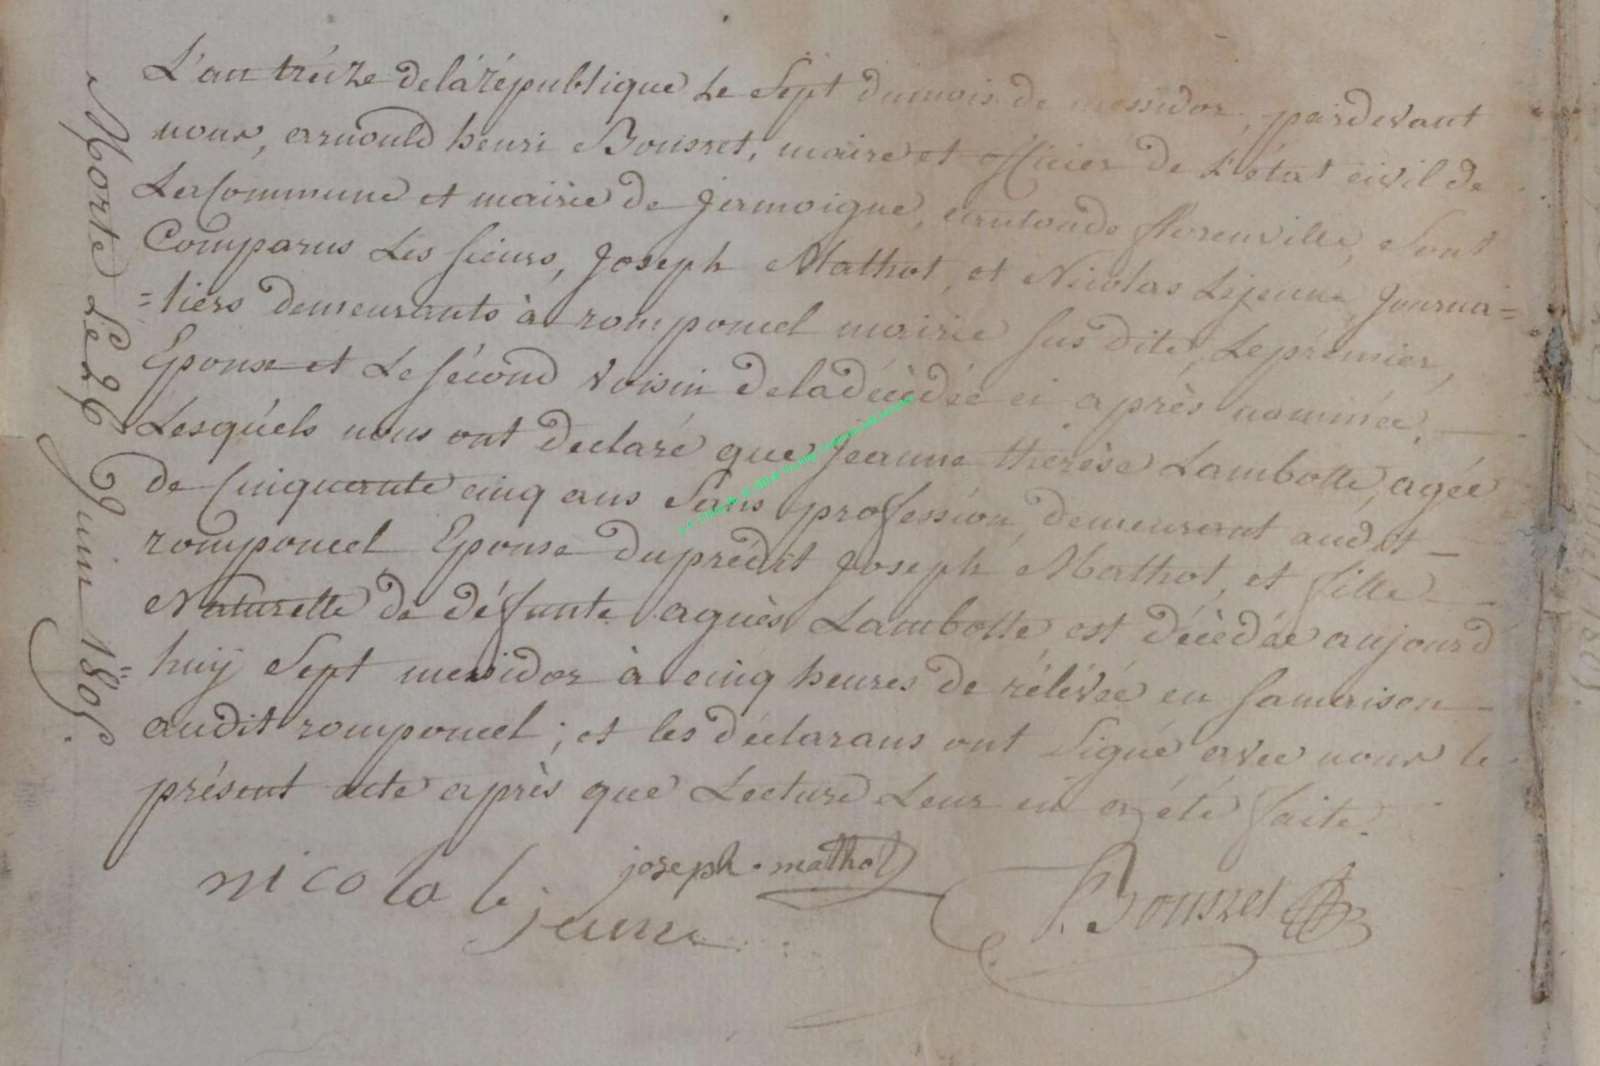 L'an tréize de la république Le Sept du mois de messidor, pardevant
nous, arnould henri Bousret, maire et officier de L'état civil de
La Commune et mairie de jamoigne, canton de florenville, Sont
Comparus Les sieurs, Joseph Mathot, et Nicolas Lejeune, Journa=
=liers demeurants à romponcel mairie sus dite, Le prémier,
Epoux et Le sécond Voisin de la décèdée ci après nommée,
Lesquéls nous ont declaré que Jeanne thérèse Lambotte, agée
de Cinquante cinq ans Sans profession, demeurant audit
romponcel Epouse du prédit Joseph Mathot, et fille
Naturelle de défunte agnès Lambotte est décèdée aujourd
huÿ Sept messidor à cinq heures de rélévée en sa maison
audit romponcel ; et les déclarans ont Signé avec nous le
présent acte après que Lecture Leur en a été faite.
nicola le jeune
joseph. mathot
Bousret
Morte Le 26 Juin 1805.